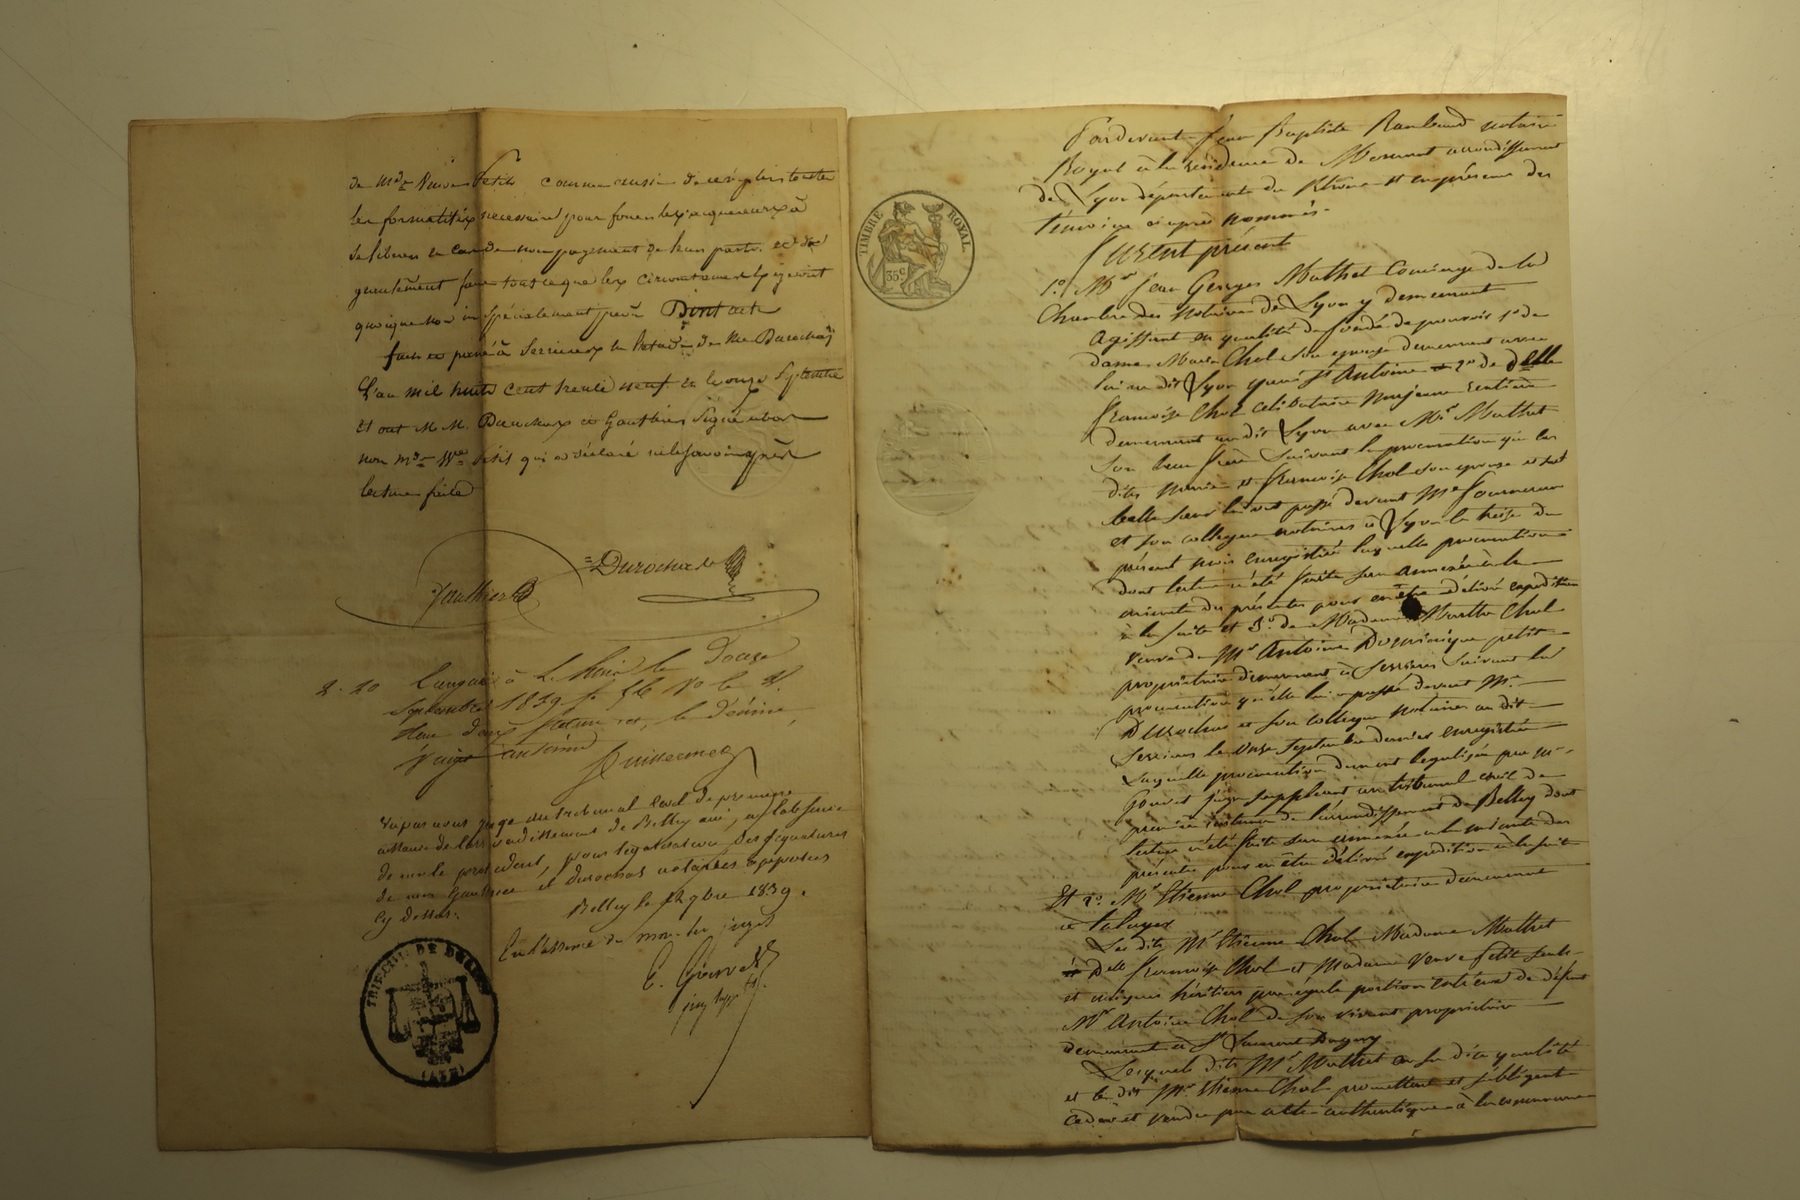 de Mde Veuve Petit comme aussi de remplir toutes
les formalités nécessaires pour forcer les acquéreurs à
se libérer en cas de non payement de leur part et
généralement faire tout ce que les circonstances exigeront
quoique non spécialement prévu Dont acte
fait et passé à Serrières en l'étude de Me Durochat
L'an mil huit cent trente neuf et le onze Septembre
Et ont M. M. Durochat et Gauthier signé
non mde Vve Petit qui a déclaré ne le savoir
lecture faite
Gauthier
Durochat
2. 20
Septembre 1839 fo 56 Vo
Guillermet
Vu par nous juge au tribunal civil de première
instance de l'arrondissement de Belley, ain, en l'absence
de m. le président, pour légalisation des signatures
de mm Gauthier et Durochat notaires apposées
cy dessus.
Belley le 12 7bre 1839.
En l'absence de
juge supp
TRIBUNAL DE BELLEY
(AIN)
TIMBRE ROYAL
35 c
Pardevant Jean Baptiste Rambaud notaire
Royal à la résidence de Mornant arrondissement
de Lyon département du Rhône et en présence des
témoins ci après nommés.
Furent présent
1o. Mr Jean Georges Mathet Concierge de la
Chambre des Notaires de Lyon y demeurant
Agissant en qualité de fondé de pouvoirs 1o de
dame Marie Chol son épouse demeurant avec
lui au dit Lyon quai St Antoine 2o de delle
françoise Chol célibataire majeure rentière
demeurant au dit Lyon avec Mr Mathet
son beau frère suivant la procuration que les
dites Marie et françoise Chol son épouse et
belle soeur lui ont passé devant Me
et son collègue notaires à Lyon le treize du
présent mois enregistrée laquelle procuration
dont lecture a été faite sera annexée à la
minute des présentes pour en être délivré expédition
à la suite et 3o de Madame Marthe Chol
veuve de Mr Antoine Dominique petit
propriétaire demeurant à Serrières suivant la
procuration qu'elle lui a passé devant Me
Durochat et son collègue notaires au dit
Serrières le onze Septembre dernier enregistrée
Laquelle procuration dument légalisée par Mr
juge suppléant au tribunal civil de
première instance de l'arrondissement de Belley dont
lecture a été faite sera annexée à la minute des
présentes pour en être délivré expédition à la suite
Et 2o. Mr Etienne Chol propriétaire demeurant
à
Les dits Mr Etienne Chol Madame Mathet
Delle françoise Chol et Madame Veuve Petit seuls
et uniques héritiers par égale portion de défunt
Mr Antoine Chol de son vivant propriétaire
demeurant à St Laurent Dagny
Lesquels dits Mr Mathet en sa dite qualité
et le dit Mr Etienne Chol promettent et s'obligent
céder et vendre par acte authentique à la commune